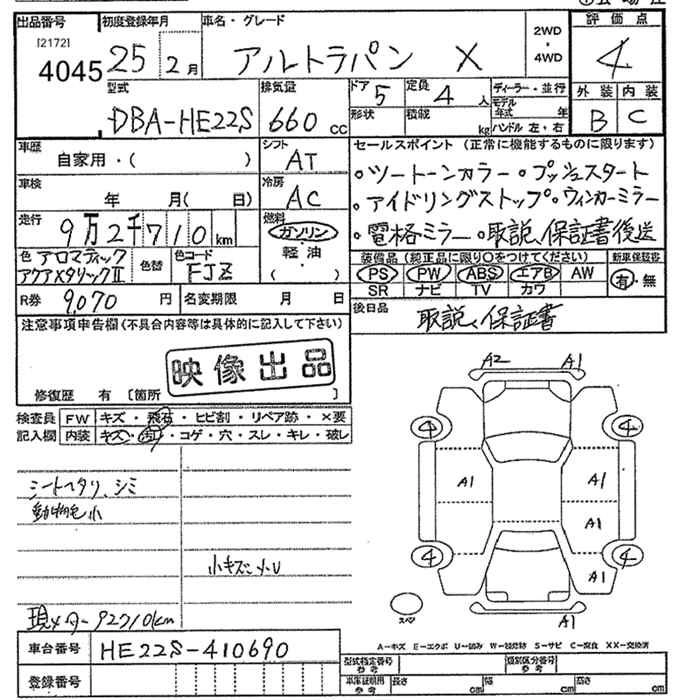 出品番号
[2172]
4045
初度登録年月
25 2月
車名・グレード
アルトラパン X
2WD
・
4WD
評価点
4
外装 内装
B C
型式
DBA-HE22S
排気量
660 cc
ドア 5
形状
定員 4 人
積載 kg
ディーラー・並行
モデル年式 年
ハンドル 左・右
車歴
自家用・( )
シフト
AT
車検
年 月( 日)
冷房
AC
走行
9万2千710km
燃料
ガソリン
・
軽・油
( )
色 アロマティック
アクアメタリックⅡ
色替
色コード
FJZ
R券 9,070 円
名変期限 月 日
セールスポイント (正常に機能するものに限ります)
・ツートーンカラー・プッシュスタート
・アイドリングストップ・ウィンカーミラー
・電格ミラー・取説、保証書後送
装備品(純正品に限り○をつけてください)
新車保証書
PS PW ABS エアB AW
SR ナビ TV カワ
有・無
後日品
取説、保証書
注意事項申告欄(不具合内容等は具体的に記入して下さい)
映像出品
修復歴 有 [箇所 ]
検査員
記入欄
FW キズ・飛石・ヒビ割・リペア跡・×要
内装 キズ・汚れ・コゲ・穴・スレ・キレ・破レ
シートヘタリ、シミ
動物毛小
小キズ小U
現メーター92710km
A2 A1
4 4
A1 A1
A1
4 4
A1
A1
スペア
A-キズ E-エクボ U-凹み W-補修跡 S-サビ C-腐食 XX-交換済
車台番号
HE22S-410690
登録番号
型式指定番号
参考
類別区分番号
参考
車庫証明用
参考
長さ cm 幅 cm 高さ cm